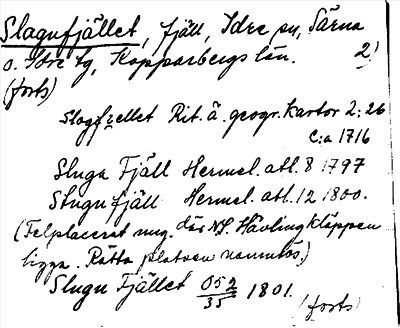 Slagufjället, fjäll, Idre sn, Särna
o. Idre tg, Kopparbergs län. 2)
(forts)
Slogfzellet Rit. ä. geogr. kartor 2:26
C:a 1716
Sluga Fjäll Hermel. atl. 8 1797
Slugu fjäll Hermel. atl. 12 1800.
(Felplacerat mng. där N.S. Hävlingkläppen
ligga. Rätta platsen namnlös.)
Slugu Fjället 052/35 1801.
(forts)